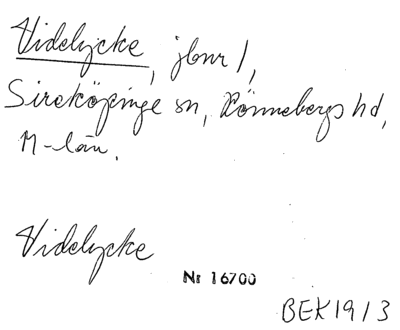 Videlycke, jbnr 1,
Sireköpinge sn, Rönnebergs hd,
M-län.
Videlycke
Nr 16700
BEK 1913